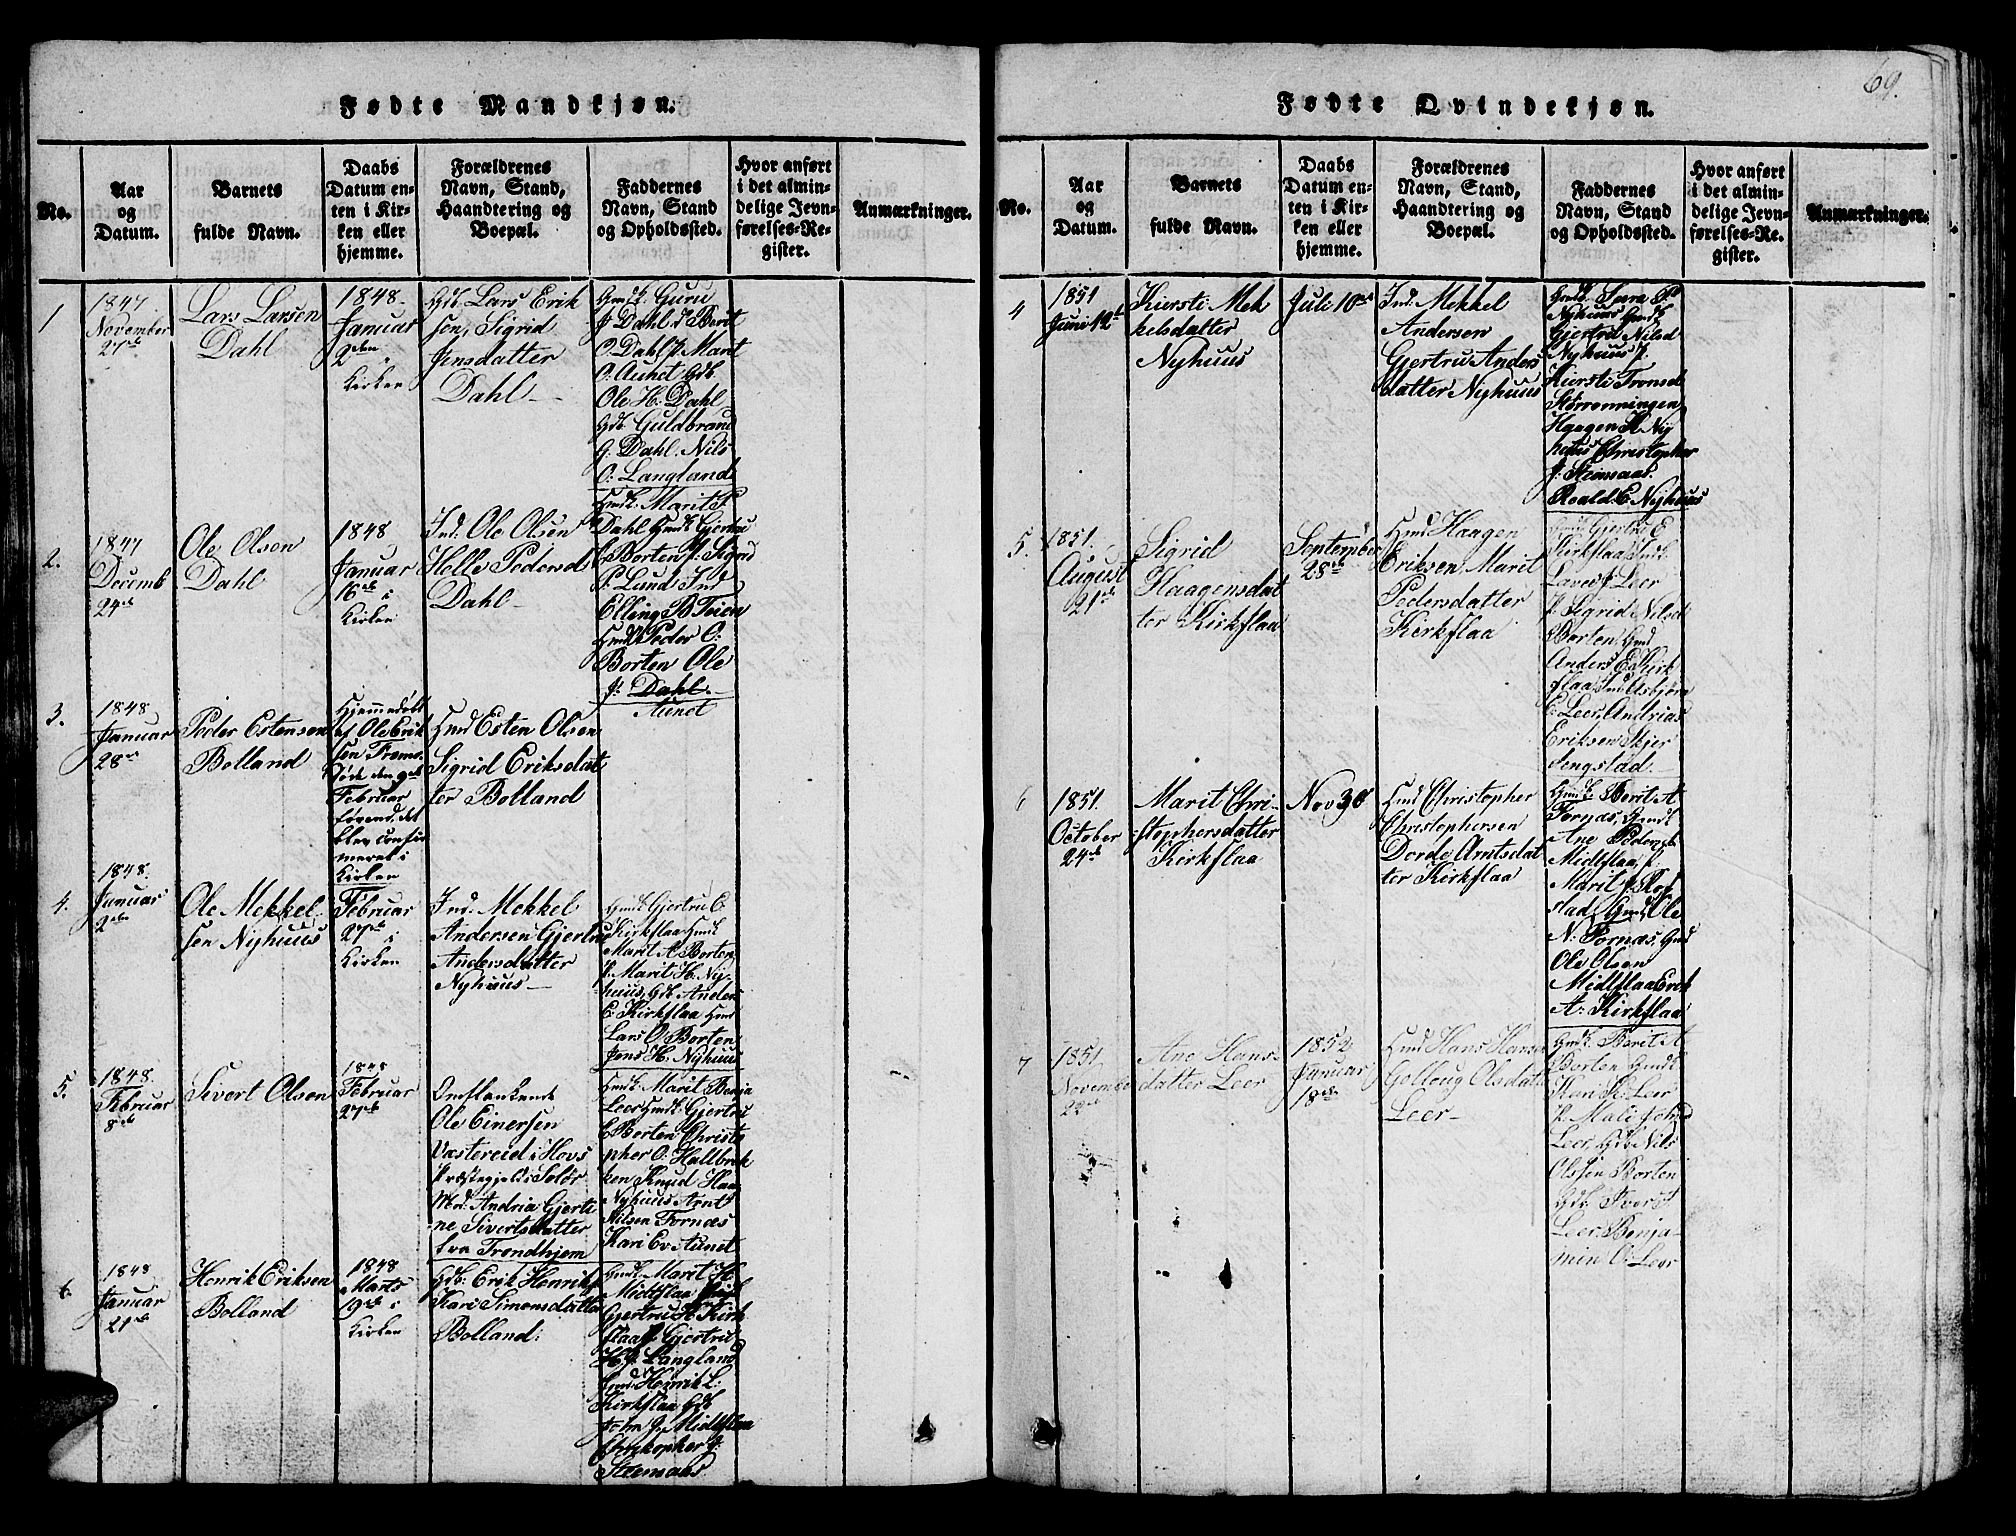 69.
Fødte Mandkjøn.
No.
Aar
og
Datum.
Barnets
fulde Navn.
Daabs
Datum en-
ten i Kir-
ken eller
hjemme.
Forældrenes
Navn, Stand,
Haandtering og
Boepæl.
Faddernes
Navn, Stand
og Opholdssted.
Hvor anført
i det almin-
delige Jevn-
førelses-Re-
gister.
Anmærkninger.
1
1847
November
27de
Lars Larsen
Dahl
1848.
Januar
2den
Kirken
Gdb. Lars Erik
sen, Sigrid
Jensdatter
Dahl
Gmdk. Guru
J. Dahl. d. Berit
O. Dahl P. Marit
O. Aunet Gdb.
Ole H. Dahl
Gdb. Guldbrand
G. Dahl. Nils
O. Langland
2.
1847
Decemb
24de
Ole Olsen
Dahl
1848
Januar
16de i
Kirken
Ind. Ole Olsen
Helle Pedersd
Dahl
Gmdk. Marit P
Dahl Gmdk Gjertru
E Borten P. Sigrid
P. Lund Ind
Elling B Toien
Gmd Peder O:
Borten Ole
J. Dahl
Aunet
3.
1848
Januar
28de
Peder Estensen
Bolland
Hjemmedøbt
af Ole Erik
sen
den 9de
Februar
det
blev confir
meret i
Kirken
Gmd Esten Olsen
Sigrid Eriksdat
ter Bolland
4.
1848.
Januar
2den
Ole Mekkel
sen Nyhuus
Februar
27de i
Kirken
Ind. Mekkel
Andersen Gjertru
Andersdatter
Nyhuus
Gmdk Gjertru E
Kirkflaa Gmdk
Marit A Borten
P. Marit H. Ny-
huus, Gdb Anders
E. Kirkflaa Gmd
Lars O Borten
Jens H. Nyhuus
5.
1848.
Februar
8de
Sivert Olsen
1848
Februar
27de
Omflankende
Ole Einersen
Vastereid i Hovs
Præstegjeld i Solør
Md. Andria Gjerti
ne Sivertsdatter
fra Trondhjem
Gmdk. Marit Benja
Leer Gmdk. Gjertru
E Borten Christo
pher O. Hallbrek
ken Knud Haa
Nyhuus Arnt
Nilsen Fornæs
Kari Ev Aunet
6.
1848
Januar
21de
Henrik Eriksen
Bolland
1848
Marts
19de i
Kirken
Gdb. Erik Henriks
Kari Simonsdatter
Bolland:
Gmdk. Marit H.
Midtflaa
Gjertru H. Kirk
flaa P. Gjertru
H. J. Langland
Gmd. Henrik L.
Kirkflaa Gdb
John J. Midtflaa
Christopher J.
Steensaas
Fødte Qvindekjøn.
No.
Aar
og
Datum.
Barnets
fulde Navn.
Daabs
Datum en-
ten i Kir-
ken eller
hjemme.
Forældrenes
Navn, Stand,
Haandtering og
Boepæl.
Faddernes
Navn, Stand
og Opholdssted.
Hvor anført
i det almin-
delige Jevn-
førelses-Re-
gister.
Anmærkninger.
4
1851
Juni 12te
Kiersti Mek
kelsdatter
Nyhuus
Juli 10de
Ind. Mekkel
Andersen
Gjertru Anders
datter Nyhuus
Gmdk. Sara P.
Nyhuus Gmdk
Gjertru Nilsd
Nyhuus P.
Kiersti Tronsd
Størronningen
Haagen H. Ny
huus Christopher
J. Steensaas
Roald. E Nyhuus
5.
1851.
August
21de
Sigrid
Haagensdat
ter Kirkflaa
September
28de
Gmd Haagen
Eriksen, Marit
Pedersdatter
Kirkflaa
Gmdk. Gjertru E
Kirkflaa Gmdk.
J. Leer
P. Sigrid Nilsd
Borten, Gmd
Anders E. Kirk
flaa, Ind Asbjørn
E. Leer, Andrias
Eriksen Skjer
dengstad
6
1851.
October
24de
Marit Chri-
stophersdatter
Kirkflaa
Nov 30
Gmd Christopher
Christophersen
Dorde Arntsdat
ter Kirkflaa
Gmdk. Berit A
Fornæs, Gmdk
Ane Pedersd
Midtflaa, P.
Marit J. Rog
stad, Gmd Ole
N. Fornæs, Gmd
Ole Olsen
Midtflaa Erik
A. Kirkflaa
7
1851
November
22de
Ane Hans-
datter Leer
1852
Januar
18de
Gmd Hans Hansen
Golloug Olsdat
Leer
Gmdk. Berit A
Borten Gmdk
Kari K. Leer
P. Mali Johnsd
Leer, Gdb Nils
Olssen Borten
Gdb. Iver J.
Leer, Benja-
min O: Leer